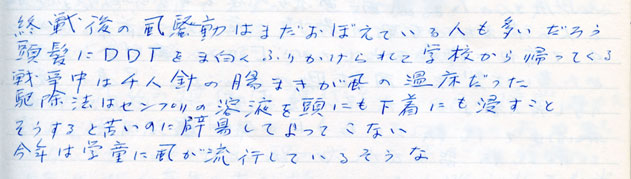 終戦後の虱騒動はまだおぼえている人も多いだろう
頭髪にDDTをま白くふりかけられて学校から帰ってくる
戦争中は千人針の腸まきが虱の温床だった
駆除法はセンブリの溶液を頭にも下着にも浸すこと
そうすると苦いのに辟易してよってこない
今年は学童に虱が流行しているそうな